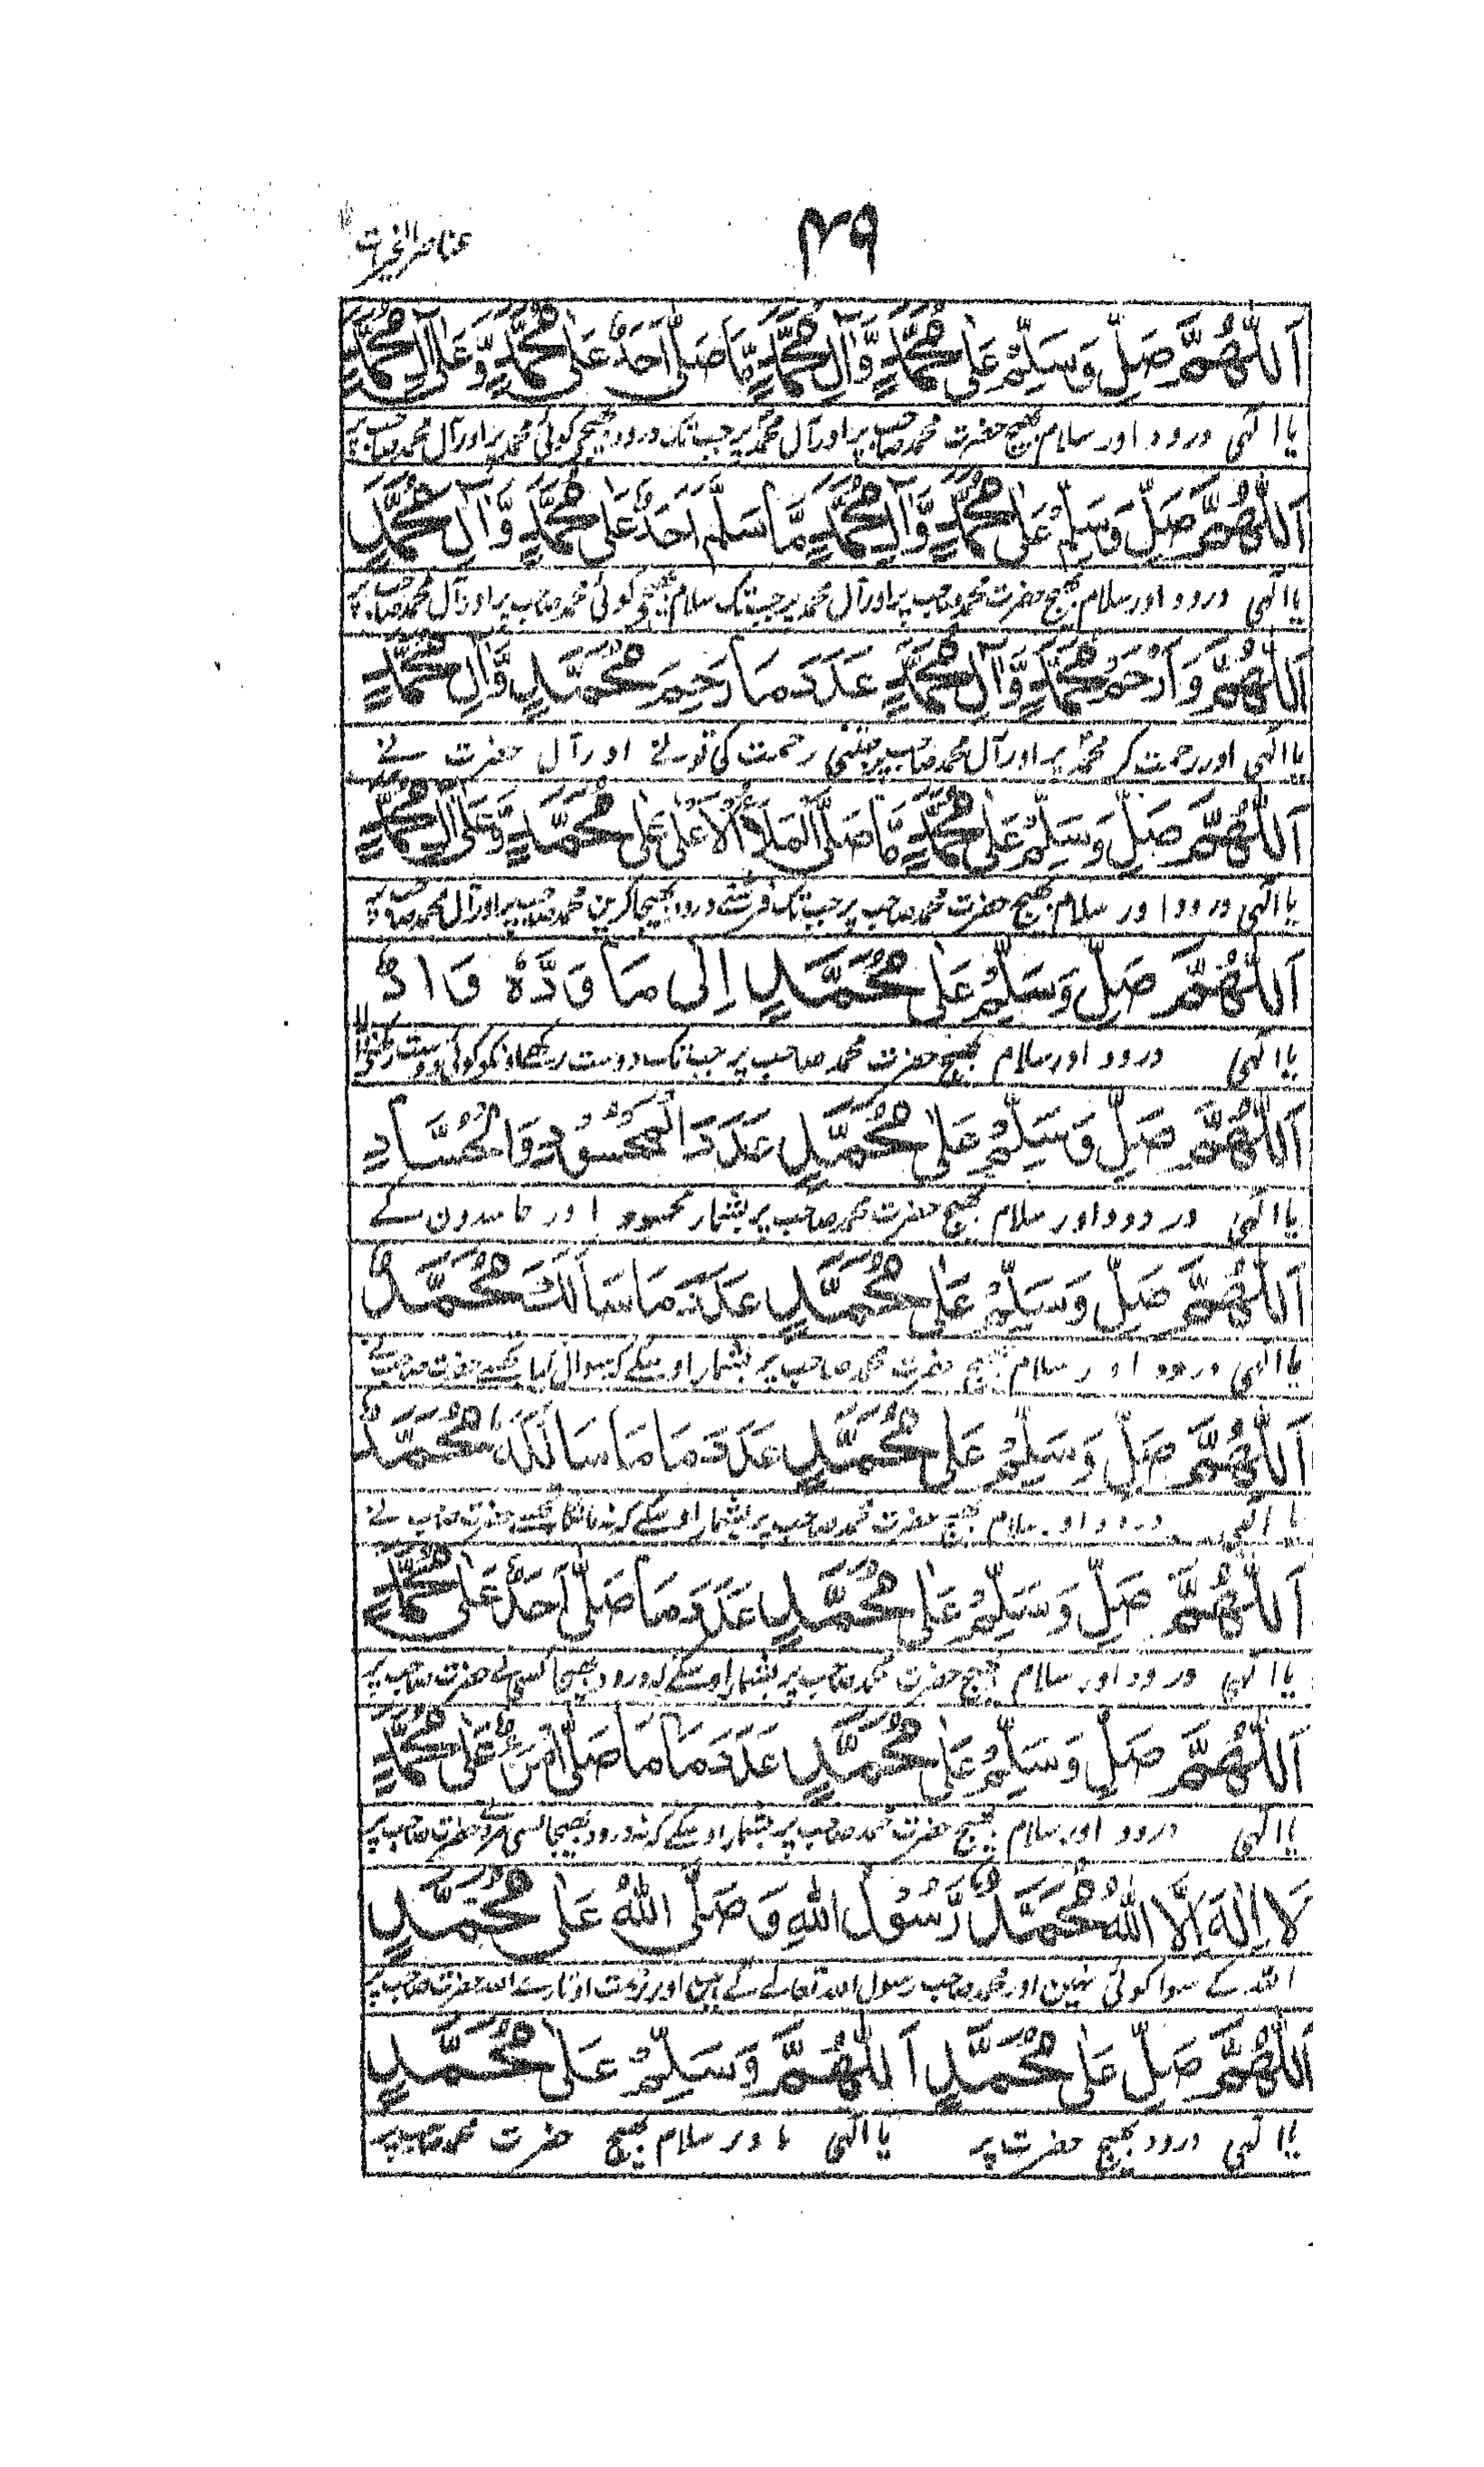 عناصر الخیرات
۲۹
اَللّٰهُمَّ صَلِّ وَسَلِّمْ عَلٰى مُحَمَّدٍ وَّاٰلِ مُحَمَّدٍ مَّا صَلّٰى اَحَدٌ عَلٰى مُحَمَّدٍ وَّعَلٰى اٰلِ مُحَمَّدٍ
یا الٰہی درود اور سلام بھیج حضرت محمد صاحب پر اور آل محمد پر جب تک درود بھیجے کوئی محمد پر اور آل محمد صاحب پر
اَللّٰهُمَّ صَلِّ وَسَلِّمْ عَلٰى مُحَمَّدٍ وَّاٰلِ مُحَمَّدٍ مَّا سَلَّمَ اَحَدٌ عَلٰى مُحَمَّدٍ وَّاٰلِ مُحَمَّدٍ
یا الٰہی درود اور سلام بھیج حضرت محمد صاحب پر اور آل محمد پر جب تک سلام بھیجے کوئی محمد صاحب پر اور آل محمد صاحب پر
اَللّٰهُمَّ وَارْحَمْ مُحَمَّدٍ وَّاٰلِ مُحَمَّدٍ عَدَدَ مَا رَحِمَ مُحَمَّدٍ وَّاٰلِ مُحَمَّدٍ
یا الٰہی اور رحمت کر محمد پر اور آل محمد صاحب پر جتنی رحمت کی تونے اور آل حضرت نے
اَللّٰهُمَّ صَلِّ وَسَلِّمْ عَلٰى مُحَمَّدٍ مَّا صَلَّى الْمَلَاُ الْاَعْلٰى عَلٰى مُحَمَّدٍ وَّعَلٰى اٰلِ مُحَمَّدٍ
یا الٰہی درود اور سلام بھیج حضرت محمد صاحب پر جب تک فرشتے درود بھیجا کرین محمد صاحب پر اور آل محمد صاحب پر
اَللّٰهُمَّ صَلِّ وَسَلِّمْ عَلٰى مُحَمَّدٍ اِلٰى مَا وَدَّهٗ وَادٌّ
یا الٰہی درود اور سلام بھیج حضرت محمد صاحب پر جب تک دوست رکھے اونکو کوئی دوست رکھنے والا
اَللّٰهُمَّ صَلِّ وَسَلِّمْ عَلٰى مُحَمَّدٍ عَدَدَ الْمَحْسُوْدِ وَالْحُسَّادِ
یا الٰہی درود اور سلام بھیج حضرت محمد صاحب پر بشمار محسود اور حاسدون کے
اَللّٰهُمَّ صَلِّ وَسَلِّمْ عَلٰى مُحَمَّدٍ عَدَدَ مَا سَاَلَكَ مُحَمَّدٌ
یا الٰہی درود اور سلام بھیج حضرت محمد صاحب پر بشمار اوسکے کہ سوال کیا تجھسے حضرت صاحب نے
اَللّٰهُمَّ صَلِّ وَسَلِّمْ عَلٰى مُحَمَّدٍ عَدَدَ مَا مَا سَاَلَكَهٗ مُحَمَّدٌ
یا الٰہی درود اور سلام بھیج حضرت محمد صاحب پر بشمار اوسکے کہ نہ مانگا تجھسے حضرت صاحب نے
اَللّٰهُمَّ صَلِّ وَسَلِّمْ عَلٰى مُحَمَّدٍ عَدَدَ مَا صَلّٰى اَحَدٌ عَلٰى مُحَمَّدٍ
یا الٰہی درود اور سلام بھیج حضرت محمد صاحب پر بشمار اوسکے کہ درود بھیجا کسی نے حضرت صاحب پر
اَللّٰهُمَّ صَلِّ وَسَلِّمْ عَلٰى مُحَمَّدٍ عَدَدَ مَا مَا صَلّٰى امْرَءٌ عَلٰى مُحَمَّدٍ
یا الٰہی درود اور سلام بھیج حضرت محمد صاحب پر بشمار اوسکے کہ نہ درود بھیجا کسی مرد نے حضرت صاحب پر
لَا اِلٰهَ اِلَّا اللّٰهُ مُحَمَّدٌ رَّسُوْلُ اللّٰهِ وَصَلَّى اللّٰهُ عَلٰى مُحَمَّدٍ
اللہ کے سوا کوئی نہین اور محمد صاحب رسول اللہ تعالے کے ہین اور رحمت اوتارے اللہ حضرت صاحب پر
اَللّٰهُمَّ صَلِّ عَلٰى مُحَمَّدٍ اَللّٰهُمَّ وَسَلِّمْ عَلٰى مُحَمَّدٍ
یا الٰہی درود بھیج حضرت پر یا الٰہی اور سلام بھیج حضرت محمد صاحب پر